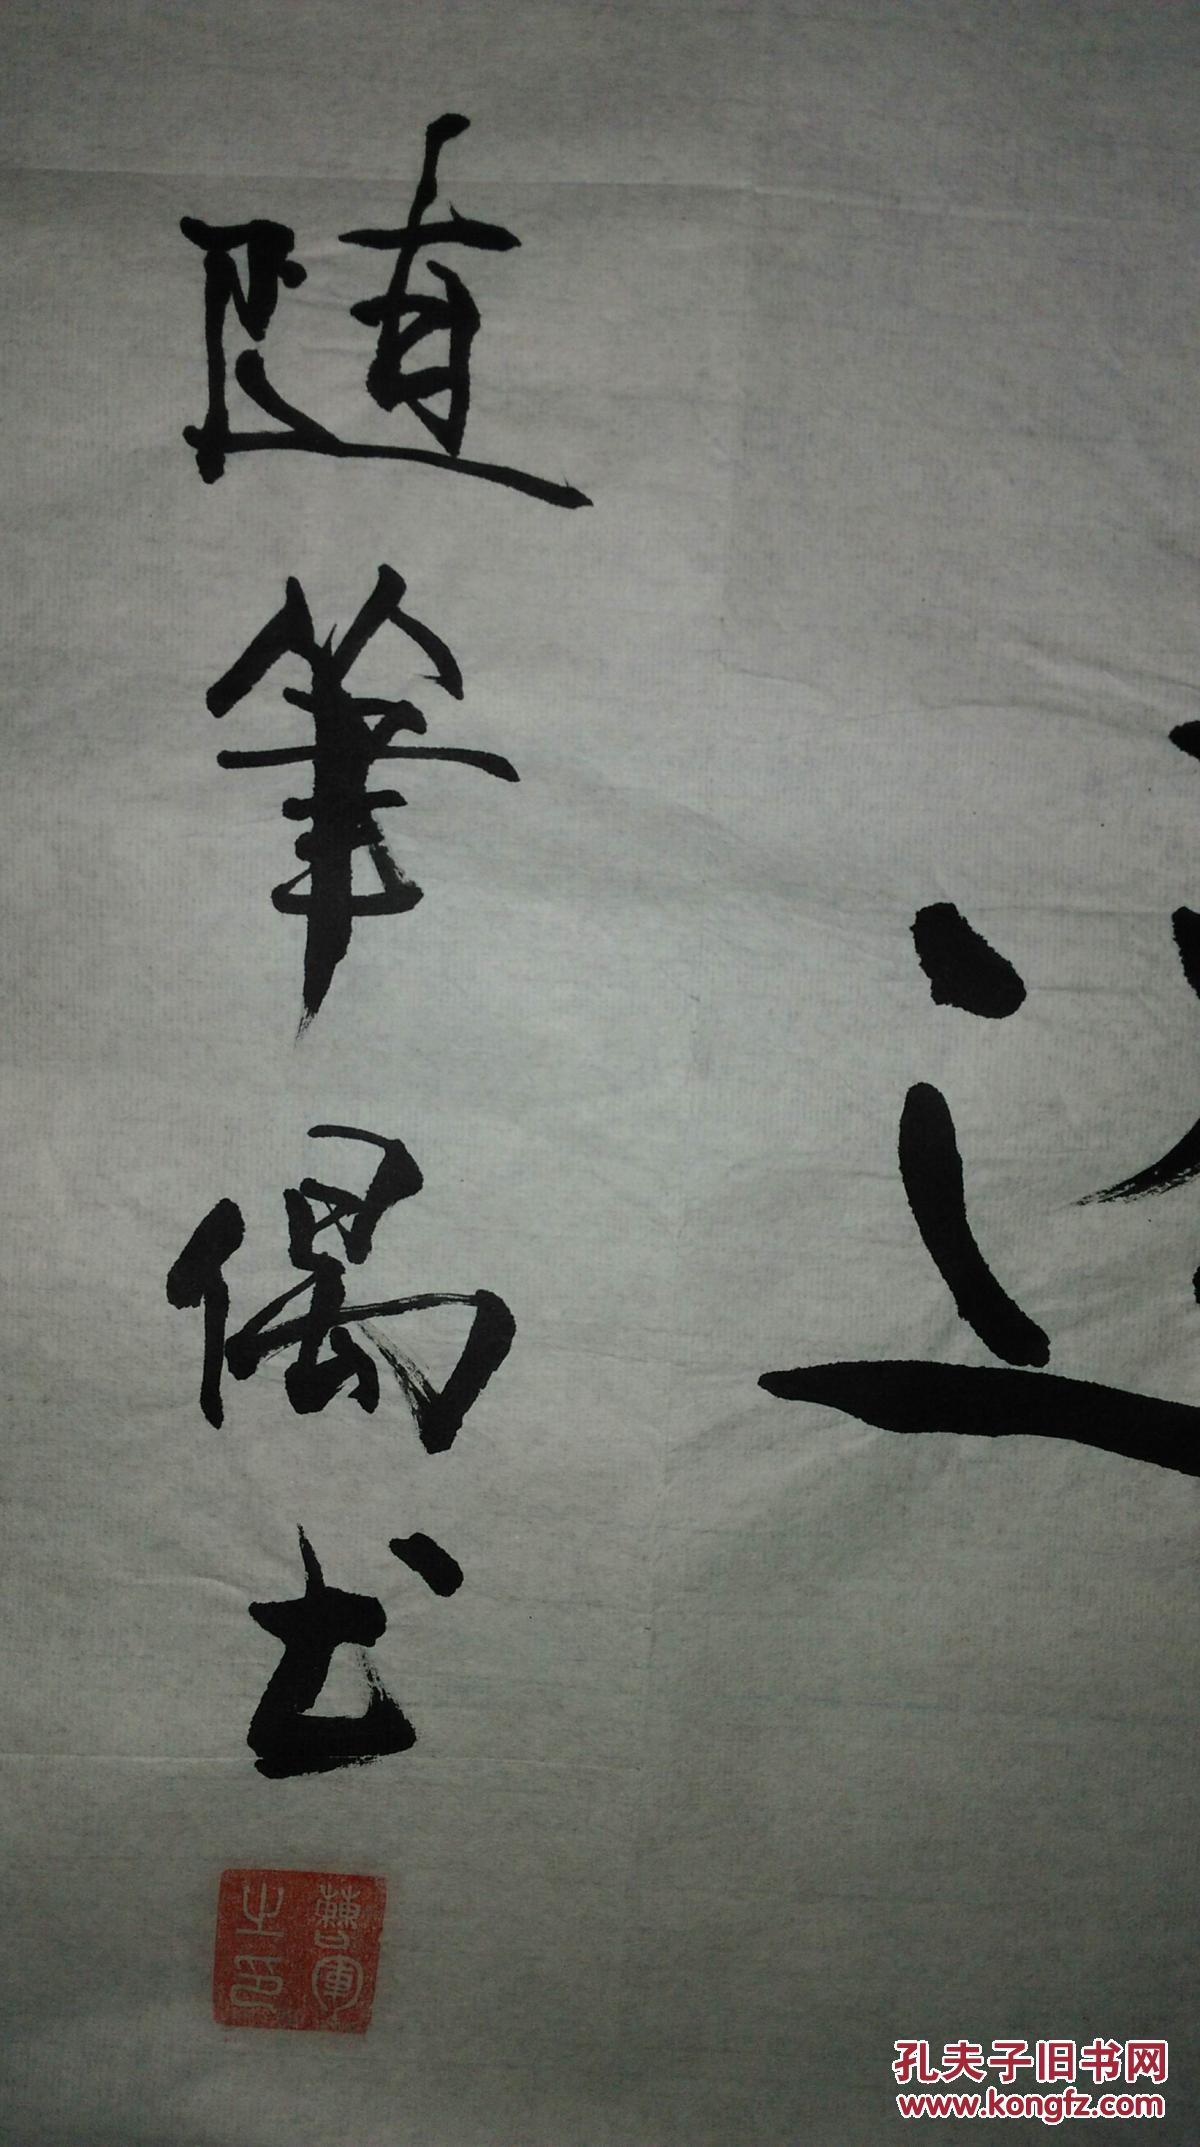 随筆偶书
之印
孔夫子旧书网
www.kongfz.com